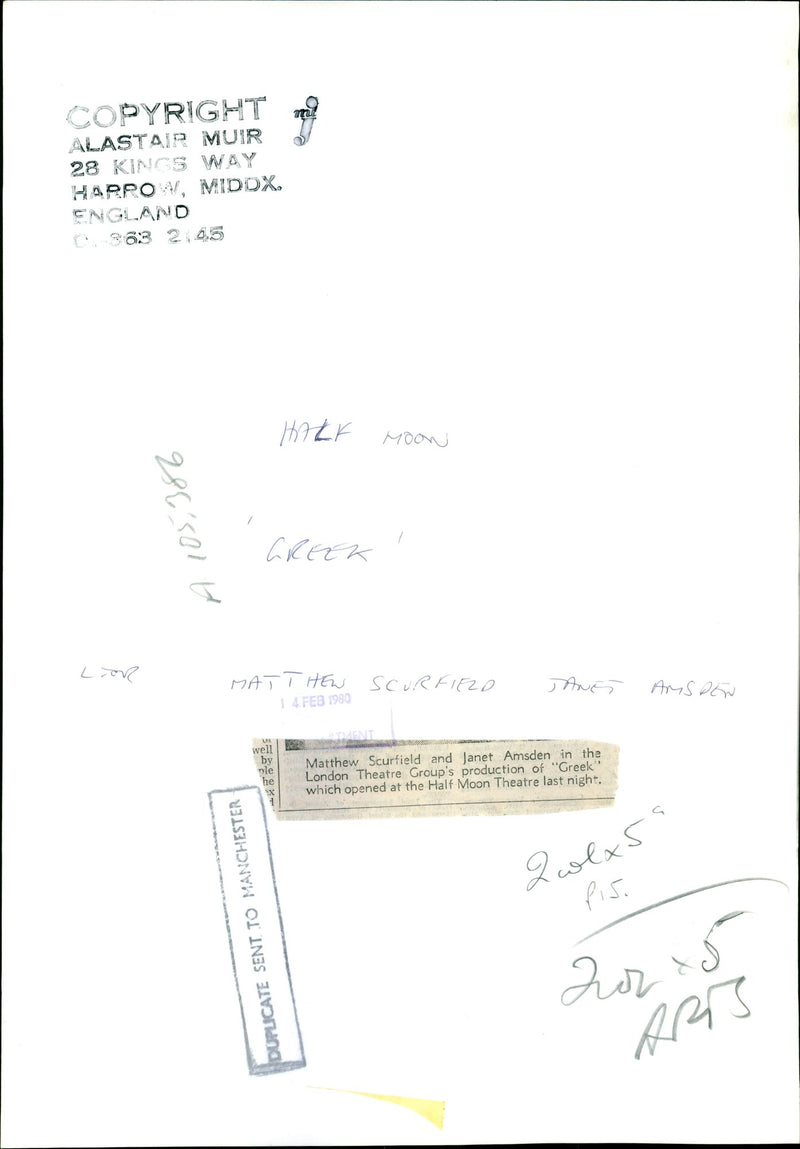 COPYRIGHT
ALASTAIR MUIR
28 KINGS WAY
HARROW, MIDDX.
ENGLAND
01-863 2145
mj
HALF MOON
A 105,386
' GREEK '
L TO R MATTHEW SCURFIELD JANET AMSDEN
14 FEB 1980
well
by
ple
he
ex
Matthew Scurfield and Janet Amsden in the
London Theatre Group's production of "Greek"
which opened at the Half Moon Theatre last night.
DUPLICATE SENT TO MANCHESTER
2 col x 5"
P15.
2 col x 5
ARTS